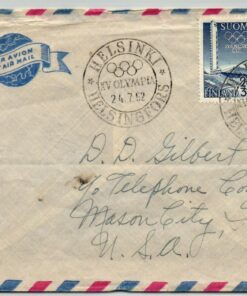 PAR AVION
AIR MAIL
HELSINKI
XV OLYMPIA
24.7.52
HELSINGFORS
SUOMI
FINLAND
D. D. Gilbert
c/o Telephone Co
Mason City,
U. S. A.